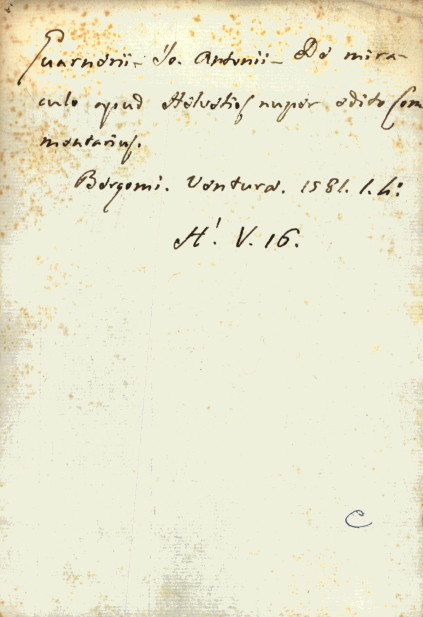 Guarnerii - Io. Antonii - De mira-
culo apud Helvetios nuper edito Com
mentarius.
Bergomi. Ventura. 1581. 1. 4:
H! V. 16.
C